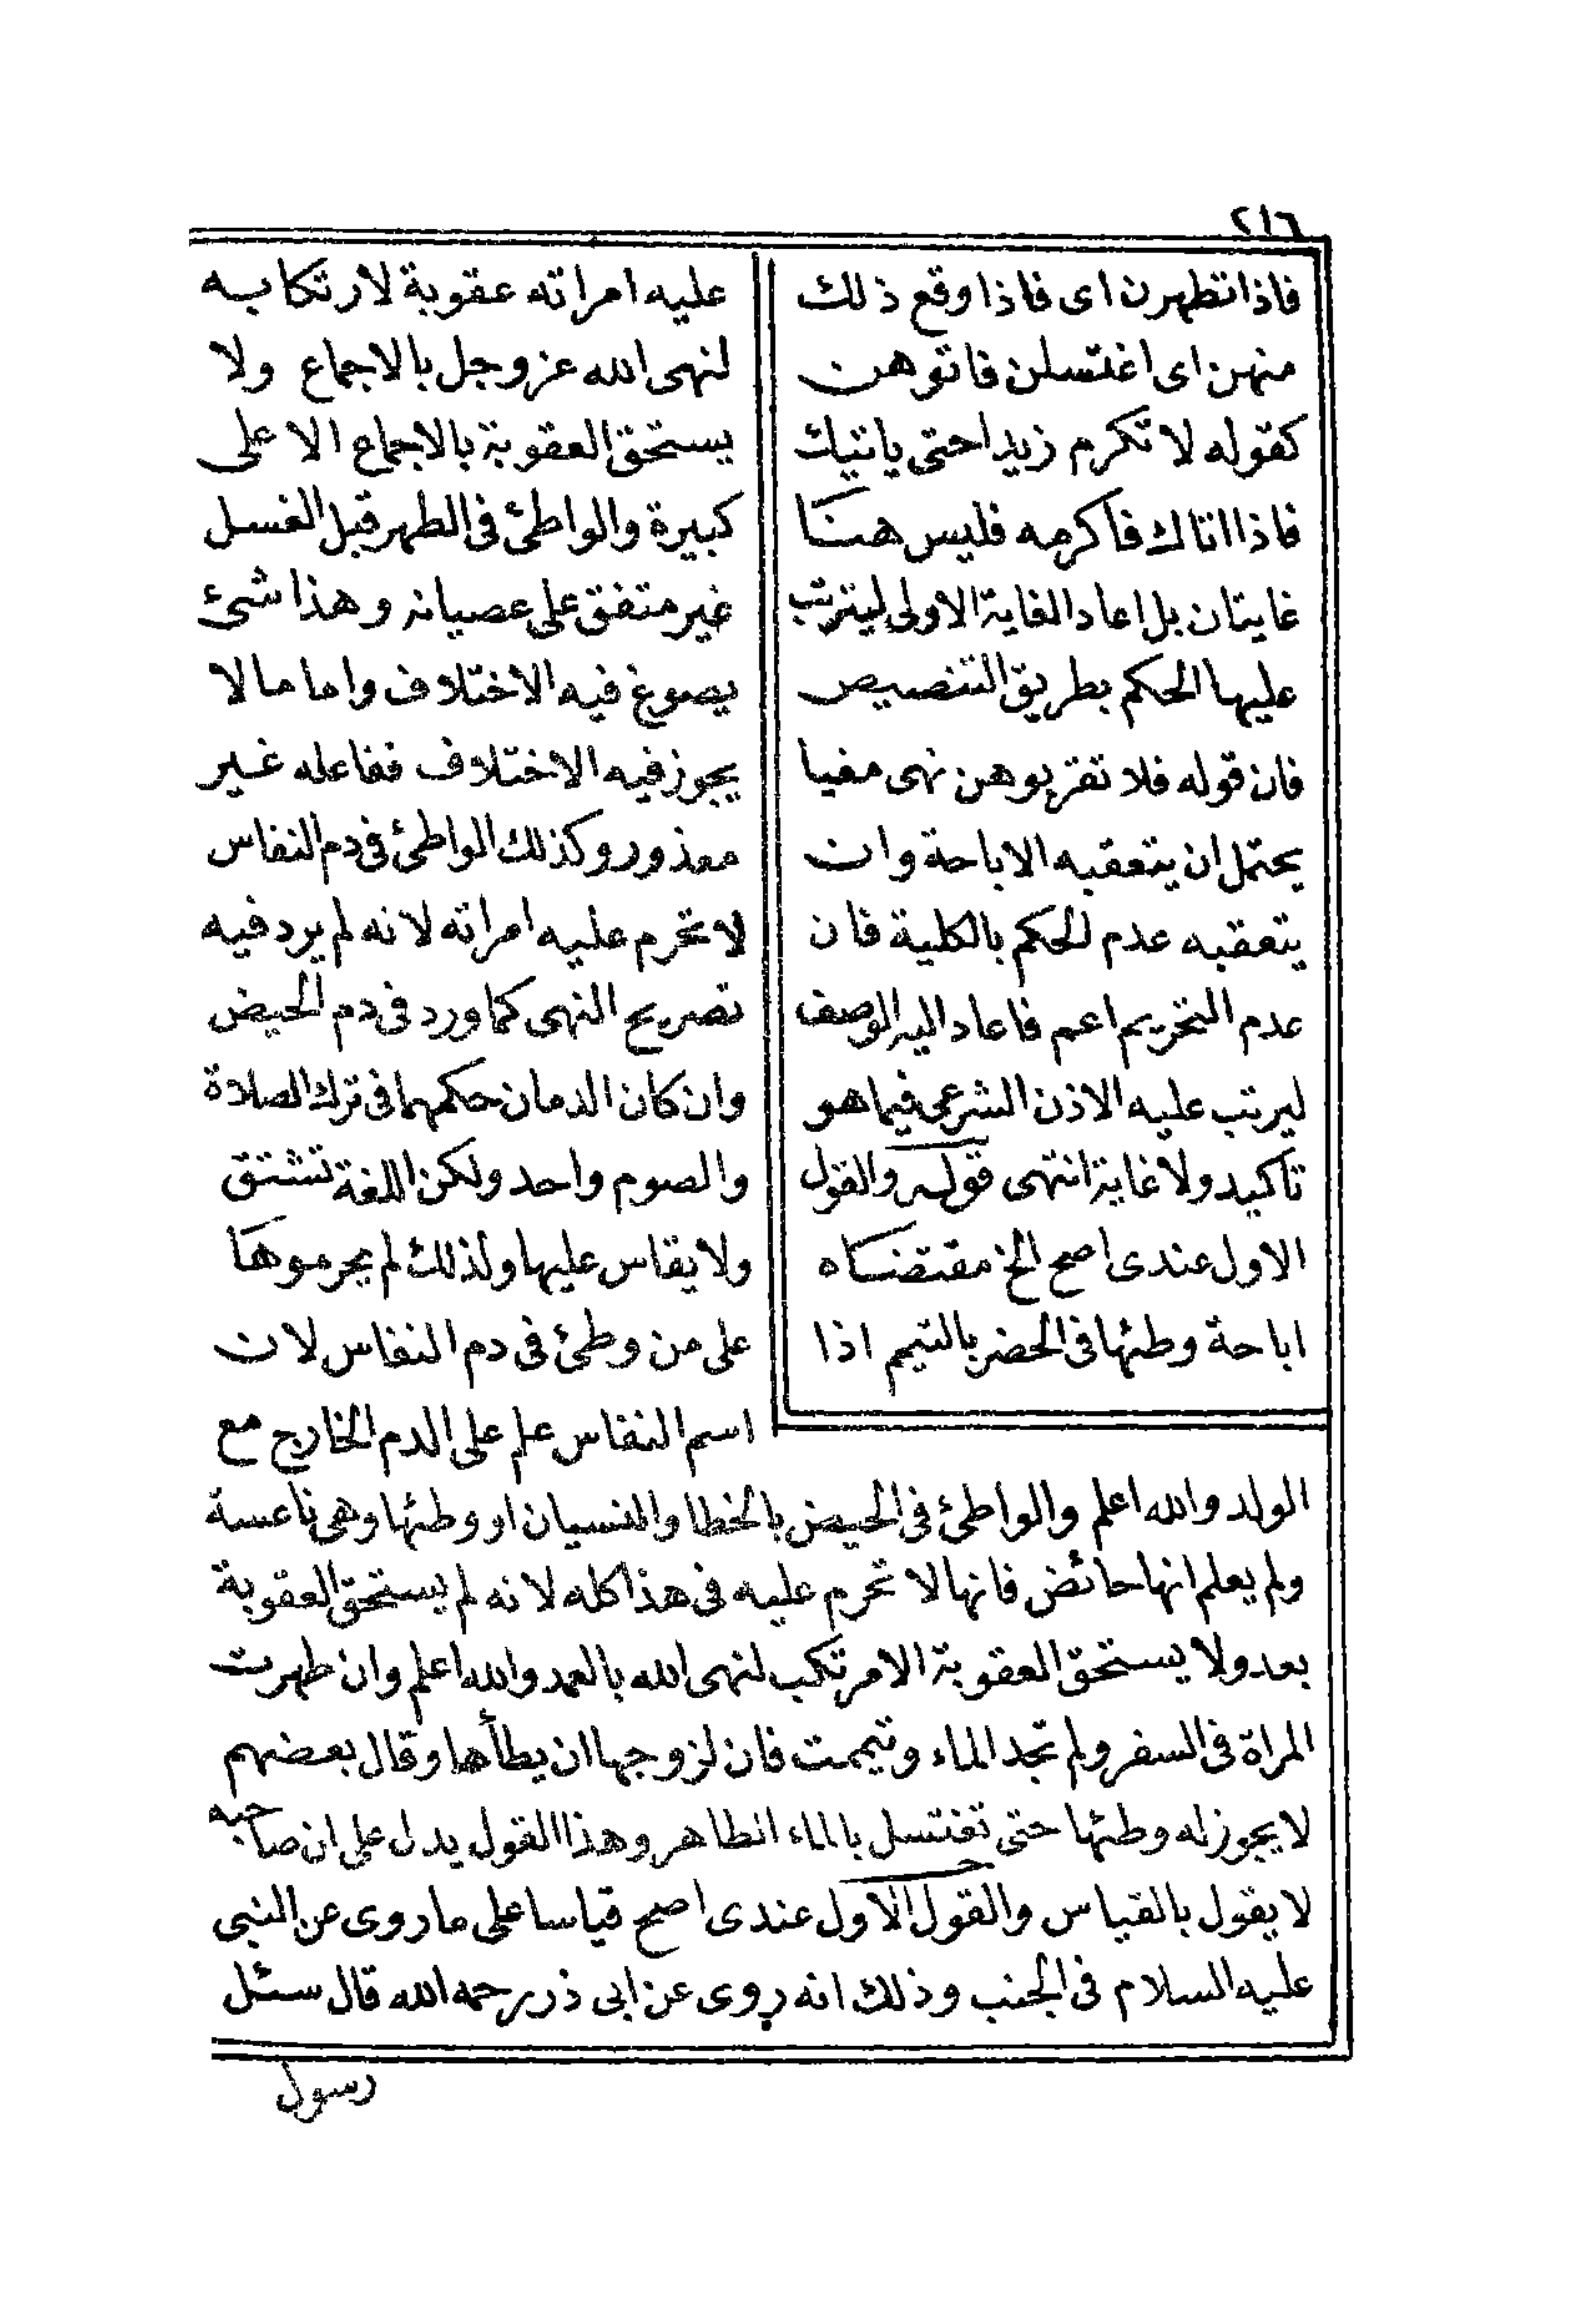 ٢١٦
فاذا تطهرن اى فاذا وقع ذلك
منهن اى اغتسلن فاتوهن
كقوله لا تكرم زيدا حتى ياتيك
فاذا اتاك فاكرمه فليس هنا
غايتان بل اعاد الغاية الاولى ليترتب
عليها الحكم بطريق التنصيص
فان قوله فلا تقربوهن نهى مغيا
يحتمل ان يتعقبه الاباحة وان
يتعقبه عدم الحكم بالكلية فان
عدم التحريم اعم فاعاد اليه الوصف
ليرتب عليه الاذن الشرعى فيما هو
تاكيد ولا غاية انتهى قوله والقول
الاول عندى اصح الخ مقتضاه
اباحة وطئها فى الحضر بالتيمم اذا
عليه امراته عقوبة لارتكابه
لنهى الله عز وجل بالاجماع ولا
يستحق العقوبة بالاجماع الا على
كبيرة والواطئ فى الطهر قبل الغسل
غير متفق على عصيانه وهذا شئ
يصوغ فيه الاختلاف واما ما لا
يجوز فيه الاختلاف ففاعله غير
معذور وكذلك الواطئ فى دم النفاس
لا تحرم عليه امراته لانه لم يرد فيه
تصريح النهى كما ورد فى دم الحيض
وان كان الدمان حكمهما فى ترك الصلاة
والصوم واحد ولكن اللغة تشتق
ولا يقاس عليها ولذلك لم يحرموها
على من وطئ فى دم النفاس لان
اسم النفاس علم على الدم الخارج مع
الولد والله اعلم والواطئ فى الحيض بالخطا والنسيان او وطئها وهى ناعسة
ولم يعلم انها حائض فانها لا تحرم عليه فى هذا كله لانه لم يستحق العقوبة
بعد ولا يستحق العقوبة الا مرتكب لنهى الله بالعمد والله اعلم وان طهرت
المراة فى السفر ولم تجد الماء وتيممت فان لزوجها ان يطأها وقال بعضهم
لا يجوز له وطئها حتى تغتسل بالماء الطاهر وهذا القول يدل على ان صاحبه
لا يقول بالقياس والقول الاول عندى اصح قياسا على ما روى عن النبى
عليه السلام فى الجنب وذلك انه روى عن ابى ذر رحمه الله قال سئل
رسول